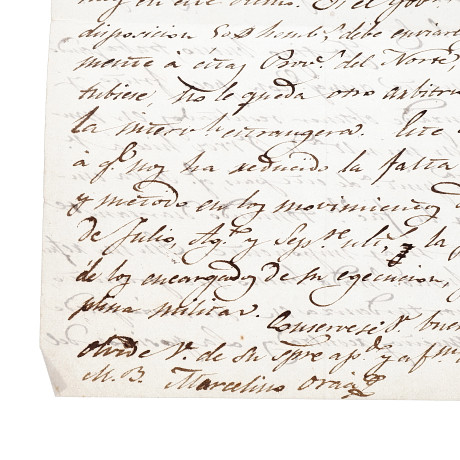 muy en este ultimo. Si el Gob
disposicion 508 homb.s debe enviar
mente á estas Prov.s del Norte
tubiese, no le queda otro arbitri
la interv.n estrangera. Este
á q.e nos ha reducido la falta
y método en los movimientos
de Julio, Ag.to y Sepre ult.o, y la
de los encargados de su egecucion,
plina militar.
Conservese V. buen
olvide V. de su spre ap.do y af.mo
M. B. Marcelino Oraa